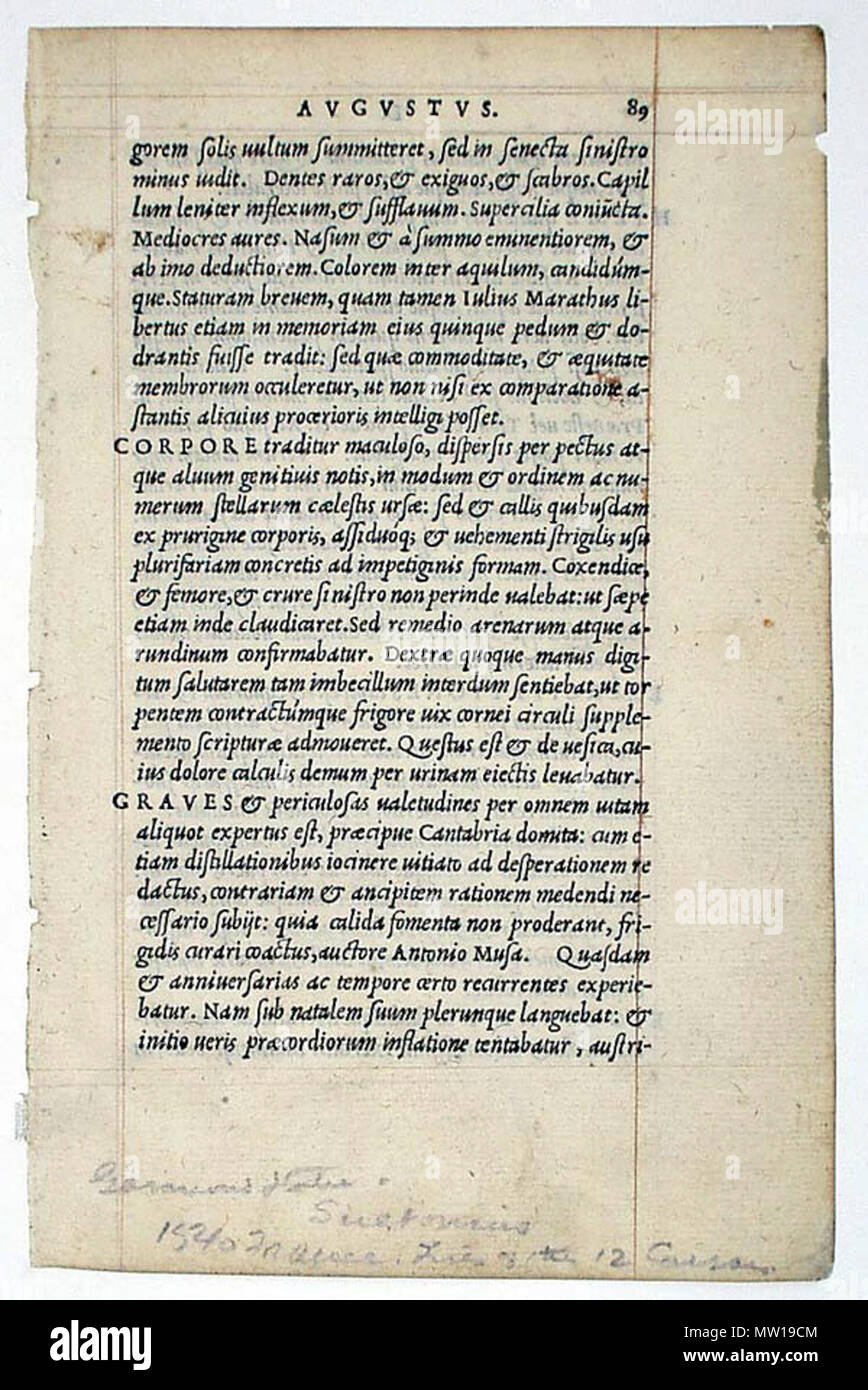 AVGVSTVS. 89
gorem solis uultum summitteret, sed in senecta sinistro
minus uidit. Dentes raros, & exiguos, & scabros. Capil
lum leniter inflexum, & sufflauum. Supercilia coniũcta.
Mediocres aures. Nasum & à summo eminentiorem, &
ab imo deductiorem. Colorem inter aquilum, candidúm-
que. Staturam breuem, quam tamen Iulius Marathus li-
bertus etiam in memoriam eius quinque pedum & do-
drantis fuisse tradit: sed quæ commoditate, & æquitate
membrorum occuleretur, ut non nisi ex comparatione a-
stantis alicuius procerioris intelligi posset.
CORPORE traditur maculoso, dispersis per pectus at-
que aluum genitiuis notis, in modum & ordinem ac nu-
merum stellarum cælestis ursæ: sed & callis quibusdam
ex prurigine corporis, assiduoq; & uehementi strigilis usu
plurifariam concretis ad impetiginis formam. Coxendice,
& femore, & crure sinistro non perinde ualebat: ut sæpe
etiam inde claudicaret. Sed remedio arenarum atque a-
rundinum confirmabatur. Dextræ quoque manus digi-
tum salutarem tam imbecillum interdum sentiebat, ut tor
pentem contractúmque frigore uix cornei circuli supple-
mento scripturæ admoueret. Questus est & de uesica, cu-
ius dolore calculis demum per urinam eiectis leuabatur.
GRAVES & periculosas ualetudines per omnem uitam
aliquot expertus est, præcipue Cantabria domita: cum e-
tiam distillationibus iocinere uitiato ad desperationem re
dactus, contrariam & ancipitem rationem medendi ne-
cessario subijt: quia calida fomenta non proderant, fri-
gidis curari coactus, auctore Antonio Musa. Quasdam
& anniuersarias ac tempore certo recurrentes experie-
batur. Nam sub natalem suum plerunque languebat: &
initio ueris præcordiorum inflatione tentabatur, austri-
Suetonius
1540 France. Lives of the 12 Caesars.
alamy
Image ID: MW19CM
www.alamy.com